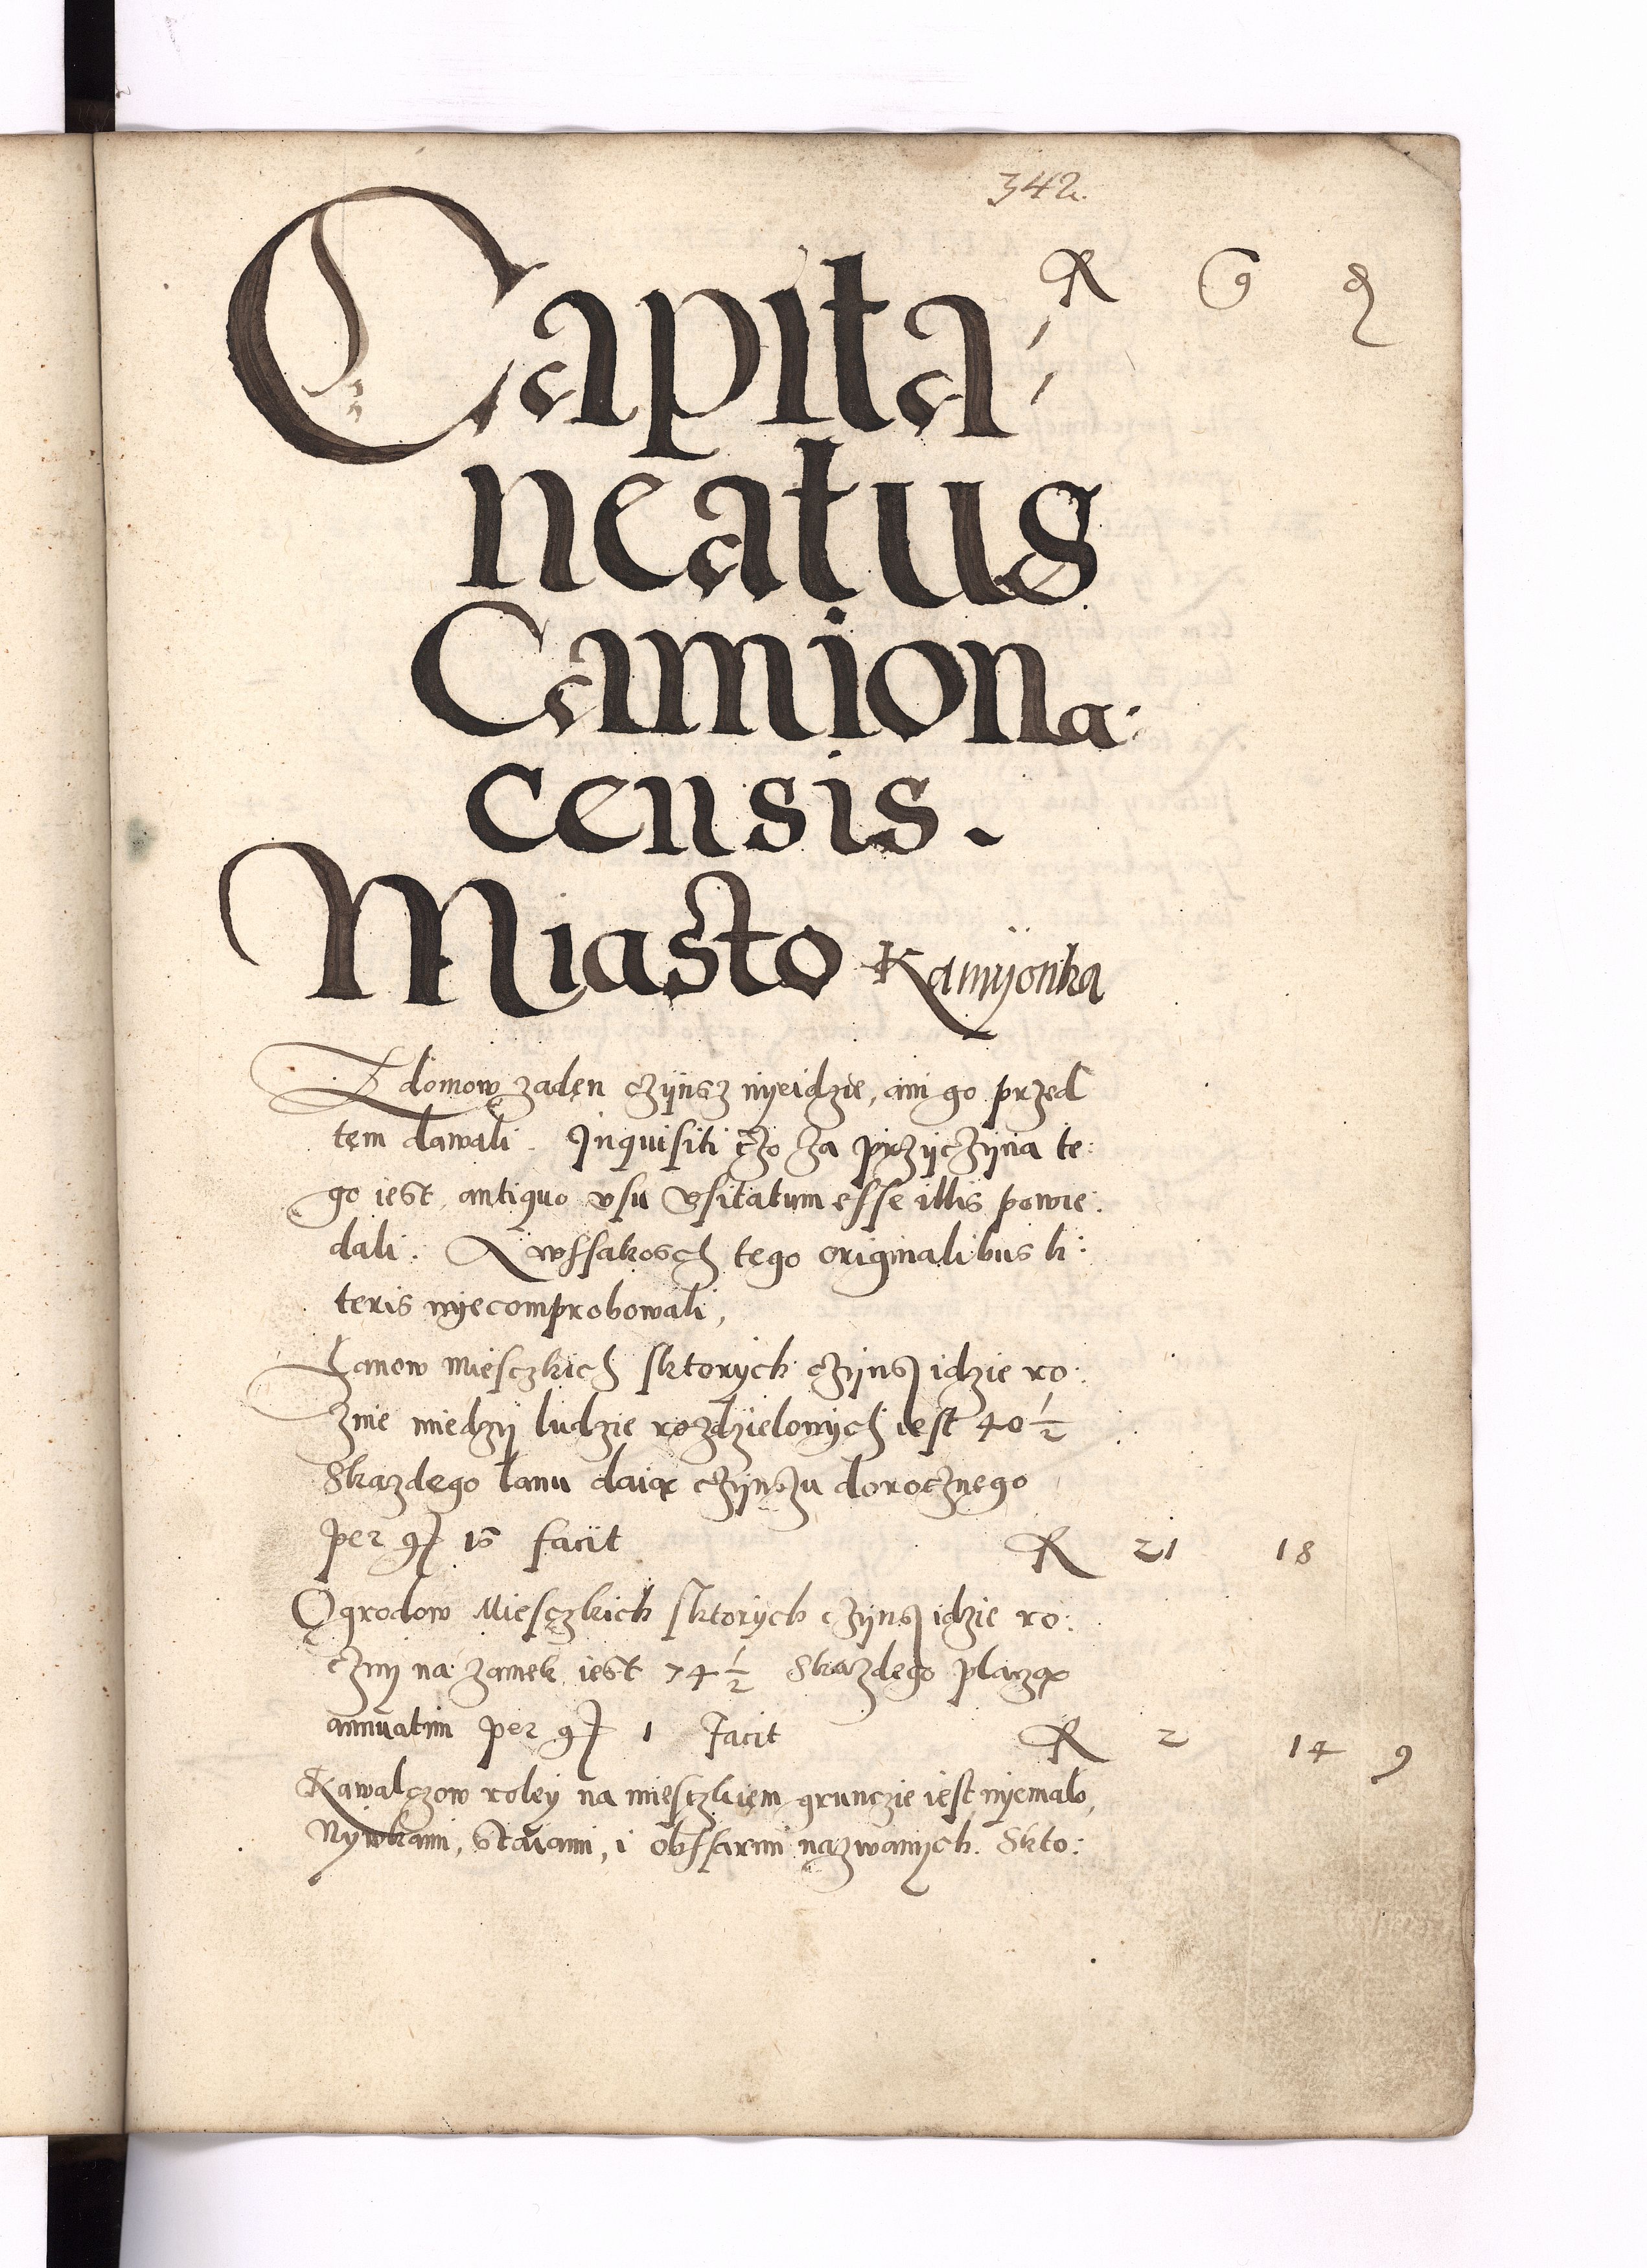 342
R G ₰
Capita:
neatus
Camiona:
censis.
Miasto Kamyonka
Z domow zaden czÿnsz nyeidzie, ani go przed
tem dawali. Inquisiti czo za przÿczÿna te:
go iest, antiquo vsu vsitatum esse illis powie:
dali. A wssakosch tego originalibus li:
teris nyecomprobowali,
Lanow miesczkich sktorych czÿnsz idzie ro:
znie miedzÿ ludzie rozdzielonÿch iest 40 1/2
Skazdego lanu daią czÿnszu dorocznego
per g 16 facit R 21 18
Ogrodow Miesczkich sktorÿch czÿnsz idzie ro:
cznÿ na zamek iest 74 1/2 Skazdego placzą
annuatim per g 1 facit R 2 14 9
Kawalczow roley na miesczkiem grunczie iest nyemalo,
Nywkami, staiami, i obssarmi nazwanÿch. Skto: